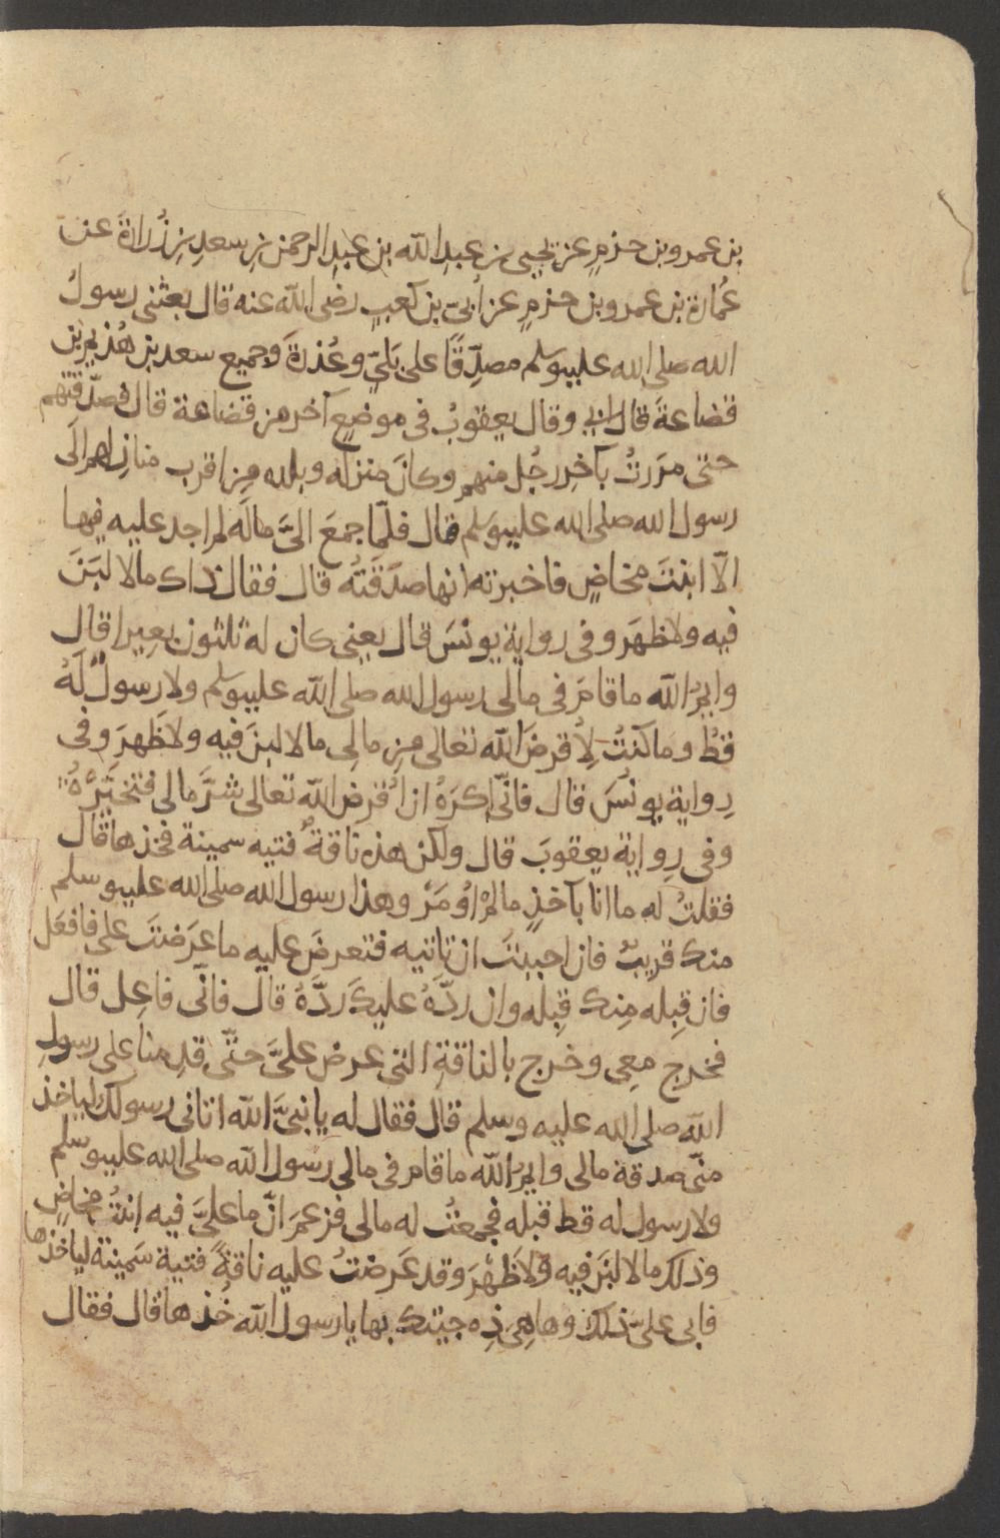 بن عمرو بن حزمٍ عن يحيى بن عبدِ الله بن عبدِ الرحمن بنِ سعدِ بنِ زُرارةَ عن
عُمارة بن عمرو بن حزمٍ عن أُبىّ بن كعبٍ رضى الله عنه قال بعثنى رسولُ
الله صلى الله عليه وسلم مصدِّقًا على بَلِىّ وعُذرةَ وجميع سعد بن هُذيم بن
قضاعةَ قال ابى وقال يعقوبُ فى موضعٍ آخر من قضاعة قال فصدّقتهم
حتى مرَرتُ بآخِر رجُل منهم وكانَ منزله وبلده مِن اقرب منازلهم الَى
رسول الله صلى الله عليه وسلم قال فلمّا جمعَ الىَّ مالَه لم اجد عليه فيها
الّا ابنتَ مخاضٍ فاخبرته انها صدَقَتُه قال فقال ذاك مالا لبَنَ
فيه ولا ظهَر وفى رواية يونسَ قال يعنى كان له ثلثون بعِيرا قال
وايمُ الله ما قامَ فى مالى رسول الله صلى الله عليه وسلم ولا رسولٌ لَهُ
قطُ وما كنتُ لِأُقرضَ الله تعالى مِن مالِى مالا لبنَ فيه ولا ظَهرَ وفى
رِواية يونُسَ قال فانّى اكرَهُ ان أُقرض الله تعالى شرَّ مالى فتخيَّرْهُ
وفى رِواية يعقوبَ قال ولكن هذه ناقةٌ فتيه سمينة فخذها قال
فقلتُ له ما انا بآخذٍ ما لمْ اُومَرْ وهذا رسول الله صلى الله عليه وسلم
منك قريبٌ فان احببتَ ان تاتيه فتعرضَ عليه ما عرَضتَ على فافعَل
فان قبِله مِنك قبِله وان ردَّهُ عليكَ ردَّهُ قال فانّى فاعِل قال
فخرج معِى وخرج بالناقةِ التى عرض علىَّ حتّى قدِمنا على رسولِ
الله صلى الله عليه وسلم قال فقال له يا نبىَّ الله اتانى رسولك لياخذ
منّى صدقة مالى وايمُ الله ما قام فى مالى رسول الله صلى الله عليه وسلم
ولا رسول له قط قبله فجمعتُ له مالى فزعمَ انّ ما علىَّ فيه ابنتُ مخاضٍ
وذلك مالا لبنَ فيه ولا ظَهْرَ وقد عَرضتُ عليه ناقةً فتية سَمينة لياخذها
فابى علىّ ذلك وها هِىَ ذِه جيتك بها يا رسول الله خُذها قال فقال